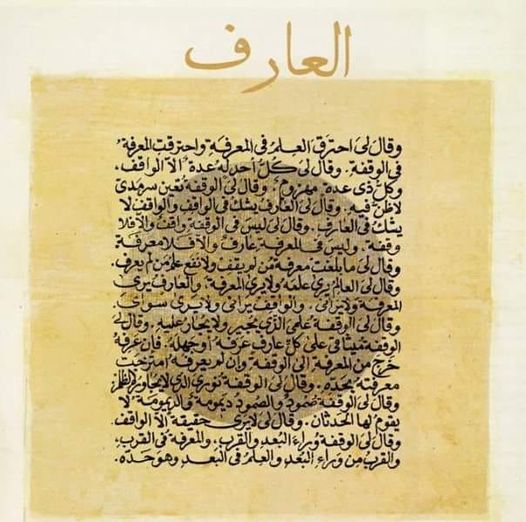 العارف
وقال لى احترق العلم فى المعرفة واحترقت المعرفة
فى الوقفة. وقال لى كل أحد له عدة الا الواقف،
وكل ذى عدة مهزوم. وقال لى الوقفة تعين سرمدى
لا ظن فيه. وقال لى العارف يشك فى الواقف والواقف لا
يشك فى العارف. وقال لى ليس فى الوقفة واقف والا فلا
وقفة. وليس فى المعرفة عارف والا فلا معرفة
وقال لى ما بلغت معرفة من لم يقف ولا نفع علم من لم يعرف.
وقال لى العالم يرى علمه ولا يرى المعرفة. والعارف يرى
المعرفة ولا يرانى. والواقف يرانى ولا يرى سواى
وقال لى الوقفة علمى الذى يجير ولا يجار عليه. وقال لى
الوقفة ميثاقى على كل عارف عرفه أو جهله. فان عرفه
خرج من المعرفة الى الوقفة وان لم يعرفه امتزجت
معرفته بحده. وقال لى الوقفة نورى الذى لا يجاوره الظلم
وقال لى الوقفة صمود والصمود ديمومة والديمومة لا
يقوم لها الحدثان. وقال لى لا يرى حقيقة الا الواقف.
وقال لى الوقفة وراء البعد والقرب، والمعرفة فى القرب،
والقرب من وراء البعد والعلم فى البعد وهو حده.